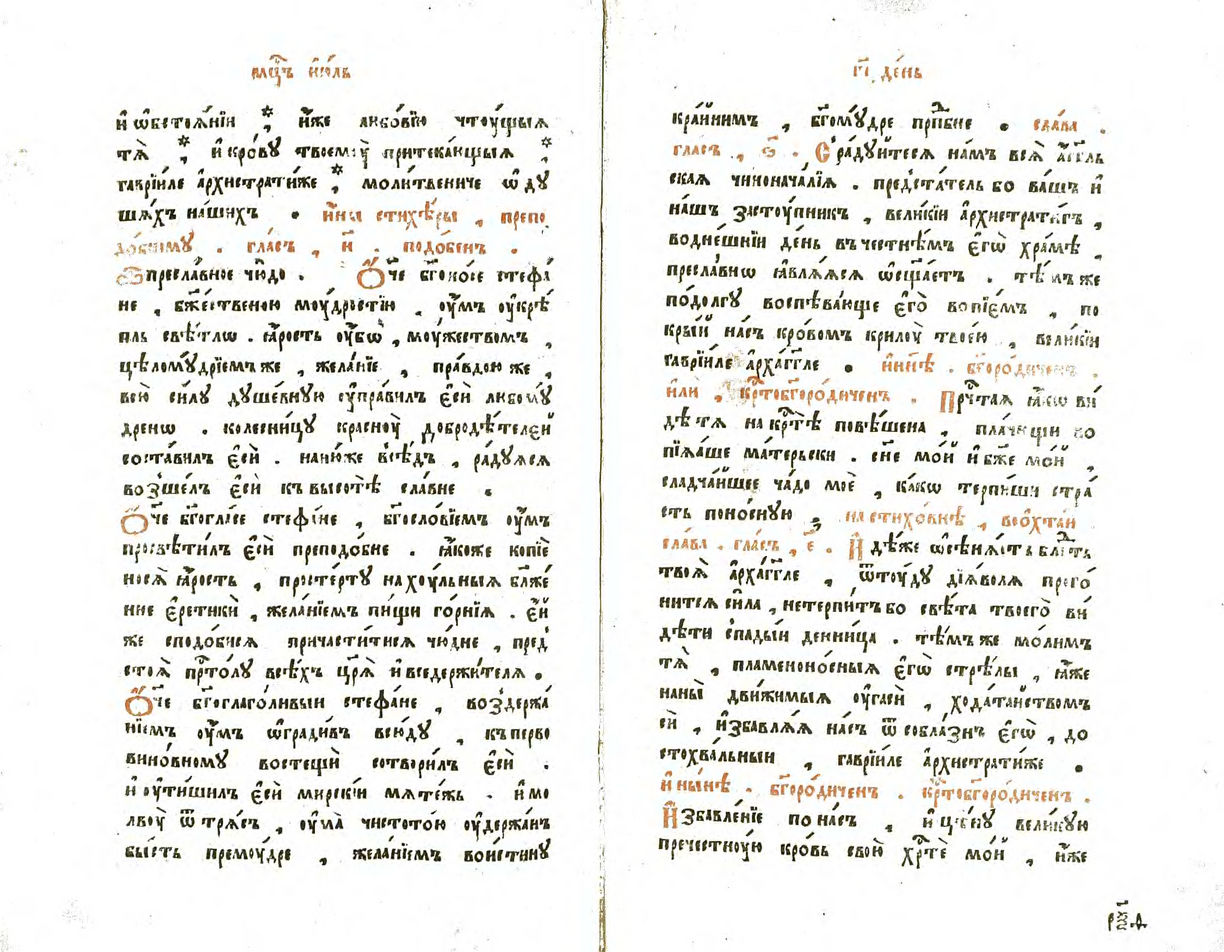 мцⷭ҇ъ і҆ю́ль
и҆ ѡ҆бстоѧ́нїи * и҆̀же любо́вїю чтоу́щыѧ
тѧ̀ * и҆ кро́вꙋ твоемꙋ̀ притека́ющыѧ *
гаврїи́ле а҆рхистрати́же * моли́твениче ѡ҆ дꙋ
ша́хъ на́шихъ . и҆́ны стихѣ́ры , препо
до́бномꙋ . гла́съ , и҃ . подо́бенъ .
Ѽ пресла́вное чю́до . Ѻ҆́че бг҃оно́се стефа́
не , бж҃е́ственою моу́дростїю , оу҆́мъ оу҆крѣ
пль свѣ́тлѡ . ꙗ҆́рость оу҆́бѡ , моу́жествомъ ,
цѣломꙋ́дрїемъ же , жела́нїе , пра́вдою же ,
всю̀ си́лꙋ дꙋше́внꙋю оу҆пра́вилъ є҆сѝ любомꙋ́
дренѡ . колесни́цꙋ красноу̀ добродѣ́телей
соста́вилъ є҆сѝ . на ню́же всѣ́дъ , ра́дꙋѧсѧ
возше́лъ є҆сѝ къ высотѣ̀ сла́вне .
Ѻ҆́че бг҃огла́се стефа́не , бг҃осло́вїемъ оу҆́мъ
просвѣти́лъ є҆сѝ преподо́бне . ꙗ҆́коже копїѐ
носѧ̀ ꙗ҆́рость , просте́ртꙋ на хоу́льныѧ бл҃же́
нне є҆ретикѝ , жела́нїемъ пи́щи го́рнїѧ . є҆́й
же сподо́бисѧ причасти́тисѧ чю́дне , пред̾
стоѧ̀ прⷭ҇то́лꙋ всѣ́хъ цр҃ѧ̀ и҆ вседержи́телѧ .
Ѻ҆́че бг҃оглаго́ливыи стефа́не , воздержа́
нїемъ оу҆́мъ ѡ҆гради́въ всю́дꙋ , къ перво
вино́вномꙋ востещѝ сотвори́лъ є҆сѝ .
и҆ оу҆тиши́лъ є҆сѝ мирскі́й мѧте́жь . и҆ мо
лвоу̀ ѿ трѧ́съ , оу҆ма̀ чистото́ю оу҆держа́нъ
бы́сть премоу́дре , жела́нїемъ вои́стинꙋ
г҃і , де́нь
кра́йнимъ , бг҃омꙋ́дре прпⷣбне . сла́ва .
гла́съ , ѕ҃ . Сра́дꙋйтесѧ на́мъ всѧ̀ а҆́гг҃ль
скаѧ чиноначалі́ѧ . предста́тель бо ва́шъ и҆
на́шъ засто́упникъ , вели́кїи а҆рхистрати́гъ ,
во дне́шнїи де́нь въ честнѣ́мъ є҆гѡ̀ хра́мѣ ,
пресла́внѡ ꙗ҆влѧ́ѧсѧ ѡ҆сщ҃а́етъ . тѣ́мъ же
по до́лгꙋ воспѣва́юще є҆го̀ вопїе́мъ , по
кры́й на́съ кро́вомъ крилоу̀ твое́ю , вели́кїи
гаврїи́ле а҆рха́гг҃ле . и҆ ны́нѣ . бг҃оро́диченъ ,
и҆лѝ , крⷭ҇тобг҃оро́диченъ . Прⷭ҇чтаѧ ꙗ҆́кѡ ви́
дѣ тѧ̀ на крⷭ҇тѣ̀ повѣ́шена , пла́чющи во
пїѧ́ше ма́терьски . сн҃е мо́й и҆ бж҃е мо́й ,
сладча́йшее ча́до моѐ , ка́кѡ терпи́ши стра́
сть поно́снꙋю , на стихо́внѣ , во ѻ҆хта́и
сла́ва . гла́съ , є҃ . И҆дѣ́же ѡ҆сѣнѧ́етъ блгⷣть
твоѧ̀ а҆рха́гг҃ле , ѿтоу́дꙋ дїѧ́волѧ прого́
нитсѧ си́ла , не терпи́тъ бо свѣ́та твоего̀ ви́
дѣти спа́дыи денни́ца . тѣ́мъ же мо́лимъ
тѧ̀ , пламеноно́сныѧ є҆гѡ̀ стрѣ́лы , ꙗ҆́же
на ны̀ дви́жимыѧ оу҆гасѝ , хода́тайствомъ
сѝ , и҆збавлѧ́ѧ на́съ ѿ собла́знъ є҆гѡ̀ , до
стохва́льныи , гаврїи́ле а҆рхистрати́же .
и҆ ны́нѣ . бг҃оро́диченъ . крⷭ҇тобг҃оро́диченъ .
И҆збавле́нїе по на́съ , и҆ цѣ́нꙋ вели́кꙋю
пречестноу́ю кро́вь свою̀ хрⷭ҇тѐ мо́й , и҆̀же